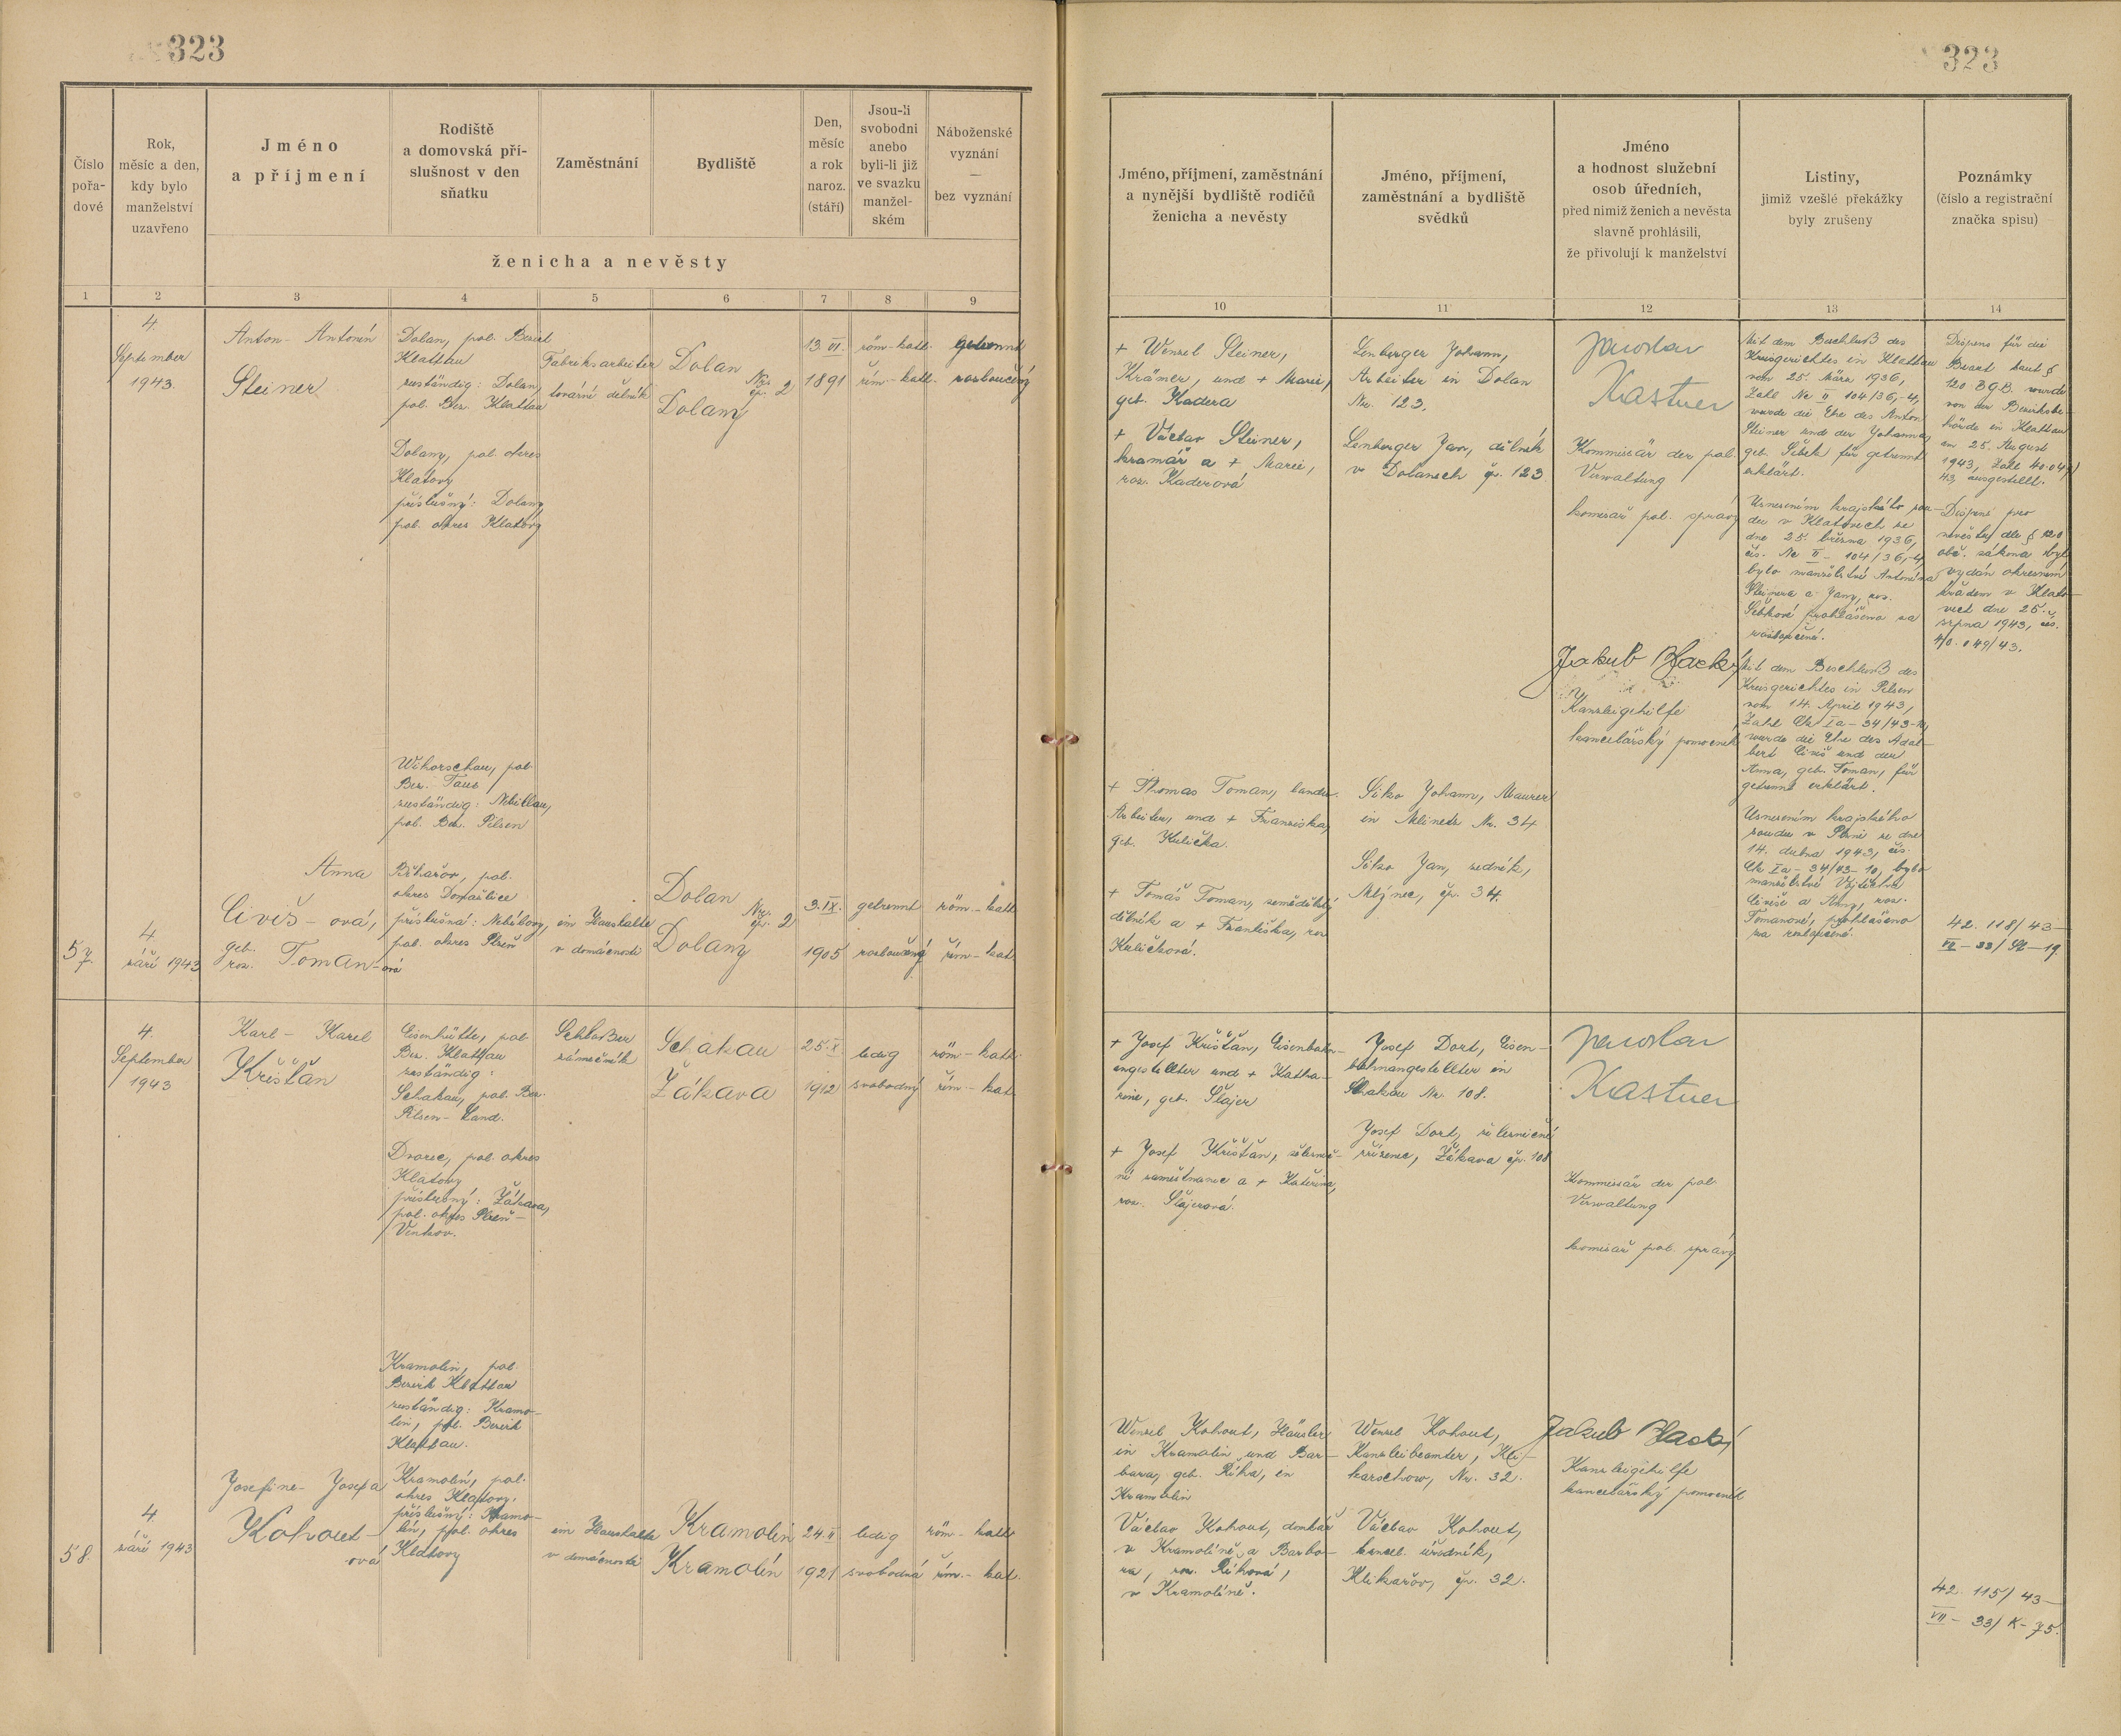 323
323
Číslo
pořa-
dové
Rok,
měsíc a den,
kdy bylo
manželství
uzavřeno
Jméno
a příjmení
Rodiště
a domovská pří-
slušnost v den
sňatku
Zaměstnání
Bydliště
Den,
měsíc
a rok
naroz.
(stáří)
Jsou-li
svobodni
anebo
byli-li již
ve svazku
manžel-
ském
Náboženské
vyznání
—
bez vyznání
ženicha a nevěsty
Jméno, příjmení, zaměstnání
a nynější bydliště rodičů
ženicha a nevěsty
Jméno, příjmení,
zaměstnání a bydliště
svědků
Jméno
a hodnost služební
osob úředních,
před nimiž ženich a nevěsta
slavně prohlásili,
že přivolují k manželství
Listiny,
jimiž vzešlé překážky
byly zrušeny
Poznámky
(číslo a registrační
značka spisu)
1 2 3 4 5 6 7 8 9 10 11 12 13 14
4.
September
1943.
Anton - Antonín
Steiner
Dolan, pol. Bezirk
Klattau
zuständig: Dolan,
pol. Bez. Klattau
Dolany, pol. okres
Klatovy
příslušný: Dolany
pol. okres Klatovy
Fabriksarbeiter
tovární dělník
Dolan
Nr. 2
čp.
Dolany
13. VI.
1891
röm-kath.
řím-kath.
getrennt
rozloučený
+ Wenzel Steiner,
Krämer, und + Marie,
geb. Kadera
+ Václav Steiner,
kramář a + Marie,
roz. Kaderová
Lenberger Johann,
Arbeiter in Dolan
Nr. 123.
Lenberger Jan, dělník
v Dolanech čp. 123
Jaroslav
Kastner
Kommissär der pol.
Verwaltung
komisař pol. správy
Mit dem Beschluß des
Kreisgerichtes in Klattau
vom 25. März 1936,
Zahl Nc II 104/36,-4,
wurde die Ehe des Anton
Steiner und der Johanna,
geb. Šebek für getrennt
erklärt.
Usnesením krajského sou-
du v Klatovech ze
dne 25. března 1936,
čís. Nc II - 104/36,-4,
bylo manželství Antonína
Steinera a Jany, roz.
Šebkové prohlášeno za
rozloučené.
Dispens für die
Braut laut §
120 BGB. wurde
von der Bezirksbe-
hörde in Klattau
am 25. August
1943, Zahl 40.049/
43, ausgestellt.
Dispens pro
nevěstu dle § 120
obč. zákona byl
vydán okresním
úřadem v Klato-
vech dne 25.
srpna 1943, čís.
40.049/43.
Jakub
Kanzleigehilfe
kancelářský pomocník
Mit dem Beschluß des
Kreisgerichtes in Pilsen
vom 14. April 1943,
Zahl Ck Ia - 34/43-10,
wurde die Ehe des Adal-
bert Civiš und der
Anna, geb. Toman, für
getrennt erklärt.
Usnesením krajského
soudu v Plzni ze dne
14. dubna 1943, čís.
Ck Ia - 34/43-10, bylo
manželství Vojtěcha
Civiše a Anny, roz.
Tomanové, prohlášeno
za rozloučené.
57.
4.
září 1943
Anna
Civiš - ová,
geb.
roz. Toman-ová
Wihorschau, pol.
Bez. Taus
zuständig: Nebillau,
pol. Bez. Pilsen
Běhařov, pol.
okres Domažlice
příslušná: Nebílovy,
pol. okres Plzeň
im Haushalte
v domácnosti
Dolan
Nr. 2
čp.
Dolany
3. IX.
1905
getrennt
rozloučená
röm-kath
řím-kat
+ Thomas Toman, landw.
Arbeiter, und + Franziska,
geb. Kulička.
+ Tomáš Toman, zemědělský
dělník a + Františka, roz
Kuličková.
Siko Johann, Maurer
in Mlinetz Nr. 34
Siko Jan, zedník,
Mlýnec, čp. 34.
42. 118/43-
VII - 33/St-19.
4.
September
1943
Karl - Karel
Křišťan
Eisenhütte, pol.
Bez. Klattau
zuständig:
Schakau, pol. Bez.
Pilsen-Land.
Dvorec, pol. okres
Klatovy
příslušný: Žákava,
pol. okres Plzeň-
Venkov.
Schlosser
zámečník
Schakau
Žákava
25. X
1912
ledig
svobodný
röm-kath.
řím-kat.
+ Josef Křišťan, Eisenbahn-
angestellter und + Katha-
rine, geb. Šlajer
+ Josef Křišťan, železnič-
ní zaměstnanec a + Kateřina,
roz. Šlajerová.
Josef Dort, Eisen-
bahnangestellter in
Schakau Nr. 108.
Josef Dort, železniční
zřízenec, Žákava čp. 108
Jaroslav
Kastner
Kommissär der pol.
Verwaltung
komisař pol. správy
58.
4
září 1943
Josefine - Josefa
Kohout-
ová
Kramolin, pol.
Bezirk Klattau
zuständig: Kramo-
lin, pol. Bezirk
Klattau.
Kramolín, pol.
okres Klatovy,
příslušný: Kramo-
lín, pol. okres
Klatovy
im Haushalte
v domácnosti
Kramolin
Kramolín
24. II
1921
ledig
svobodná
röm-kath
řím.-kat.
Wenzel Kohout, Häusler
in Kramolin und Bar-
bara, geb. Říha, in
Kramolin
Václav Kohout, domkář
v Kramolíně a Barbo-
ra, roz. Říhová,
v Kramolíně.
Wenzel Kohout,
Kanzleibeamter, Kli-
karschow, Nr. 32.
Václav Kohout,
kancel. úředník,
Klikařov, čp. 32.
Jakub
Kanzleigehilfe
kancelářský pomocník
42. 115/43-
VII - 33/K-75.